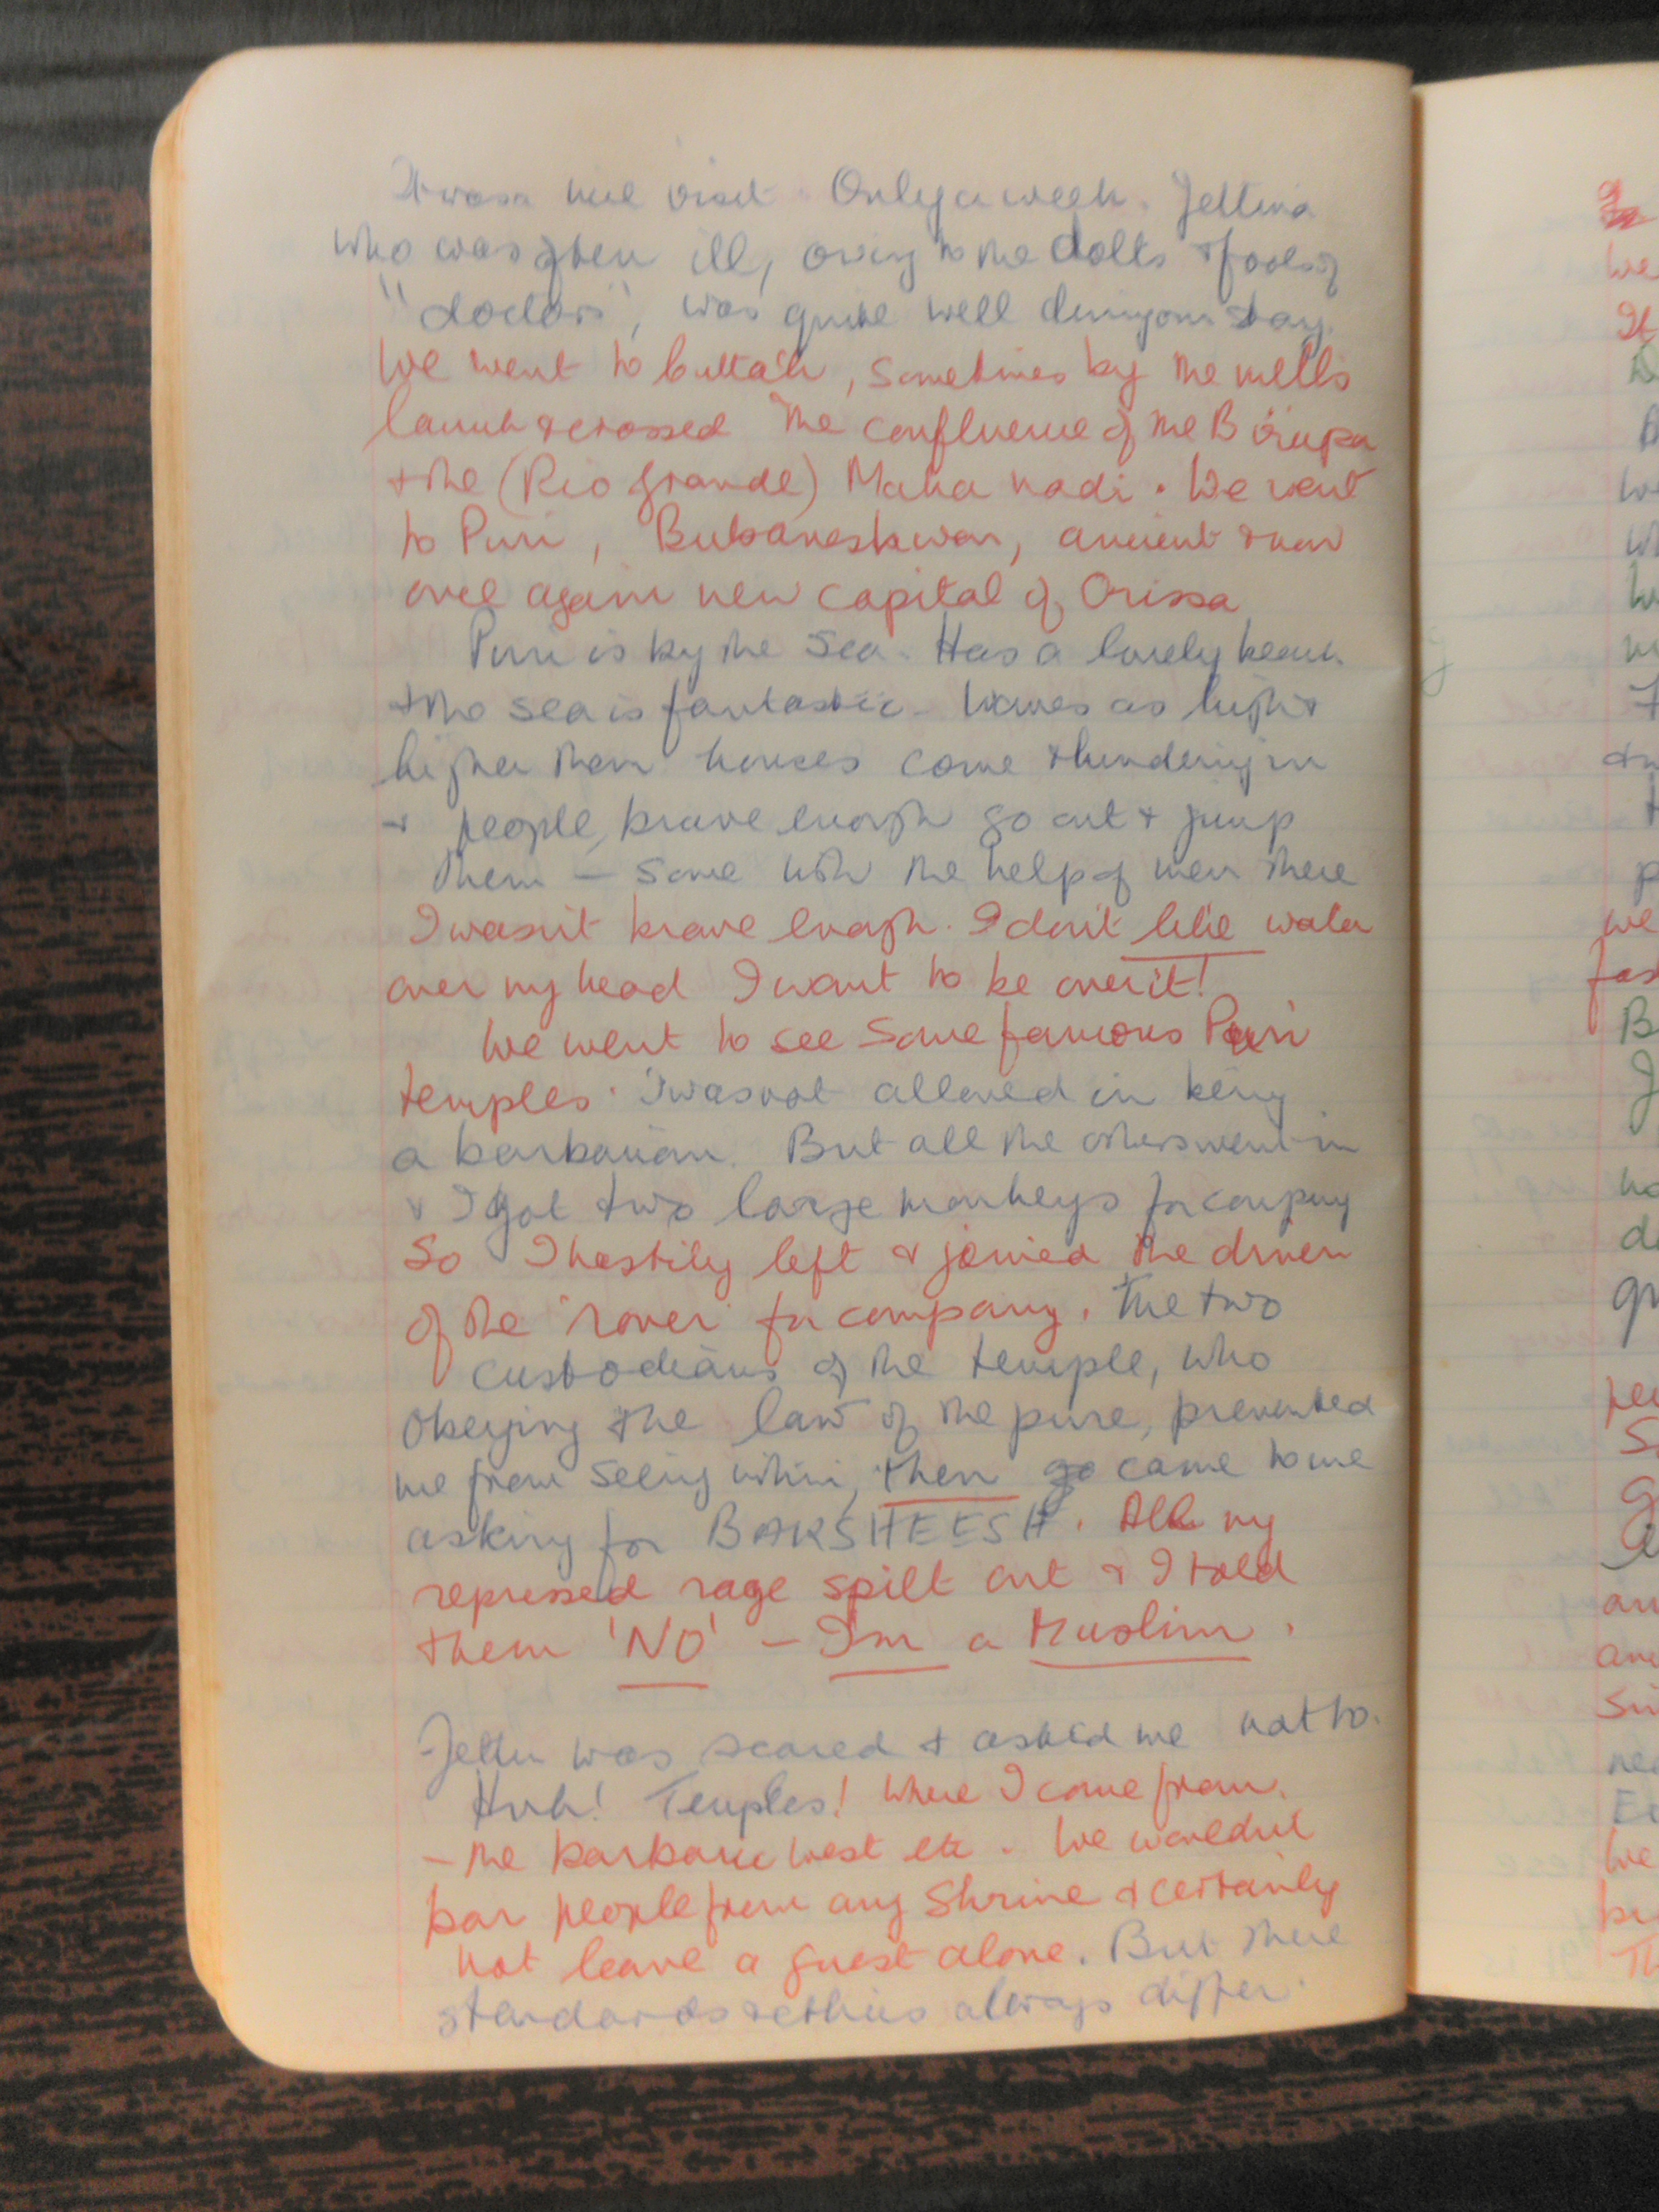 It was a nice visit. Only a week. Jettina
who was often ill, owing to the dolts & fools of
"doctors", was quite well during our stay.
We went to Cuttack, sometimes by the mill's
launch & crossed the confluence of the Birupa
& the (Rio Grande) Maha nadi. We went
to Puri, Bubaneshwar, ancient & now
once again new capital of Orissa
Puri is by the sea. Has a lovely beach
& the sea is fantastic - waves as high &
higher than houses come thundering in
& people, brave enough go out & jump
them - some with the help of men there
I wasn't brave enough. I don't like water
over my head I want to be over it!
We went to see some famous Puri
temples. I was not allowed in being
a barbarian. But all the others went in
& I got two large monkeys for company
So I hastily left & joined the driver
of the 'rover' for company. The two
custodians of the temple, who
obeying the law of the pure, prevented
me from seeing within, then came to me
asking for BAKSHEESH. All my
repressed rage spilt out & I told
them 'NO' - I'm a Muslim.
Jettu was scared & asked me not to.
Huh! Temples! Where I come from.
- the barbaric west etc. We wouldnt
bar people from any shrine & certainly
not leave a guest alone. But there
standards & ethics always differ.